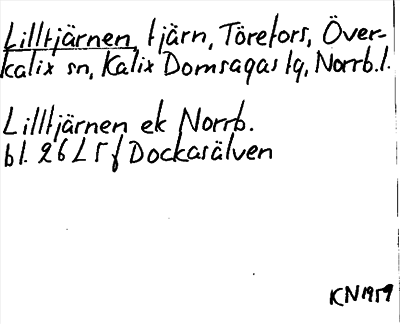 Lilltjärnen, tjärn, Törefors, Över-
kalix sn, Kalix Domsagas tg, Norrb.l.
Lilltjärnen ek Norrb.
bl. 26 L 5 f Dockasälven
KN 1959